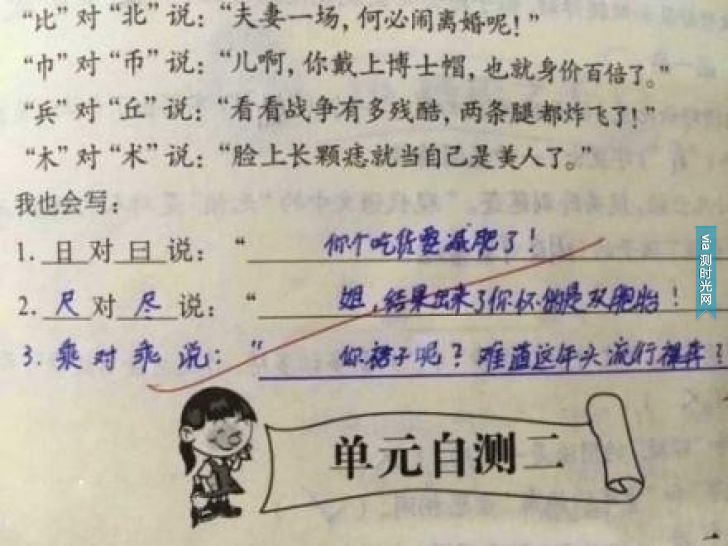 “比”对“北”说：“夫妻一场，何必闹离婚呢！”
“巾”对“币”说：“儿啊，你戴上博士帽，也就身价百倍了。”
“兵”对“丘”说：“看看战争有多残酷，两条腿都炸飞了！”
“木”对“术”说：“脸上长颗痣就当自己是美人了。”
我也会写：
1. 日 对 曰 说：“ 你个吃货要减肥了！
2. 尺 对 尽 说：“ 姐，结果出来了你怀的是双胞胎！
3. 乘 对 乖 说：“ 你裙子呢？难道这年头流行裸奔？
单元自测二
via 测时光网